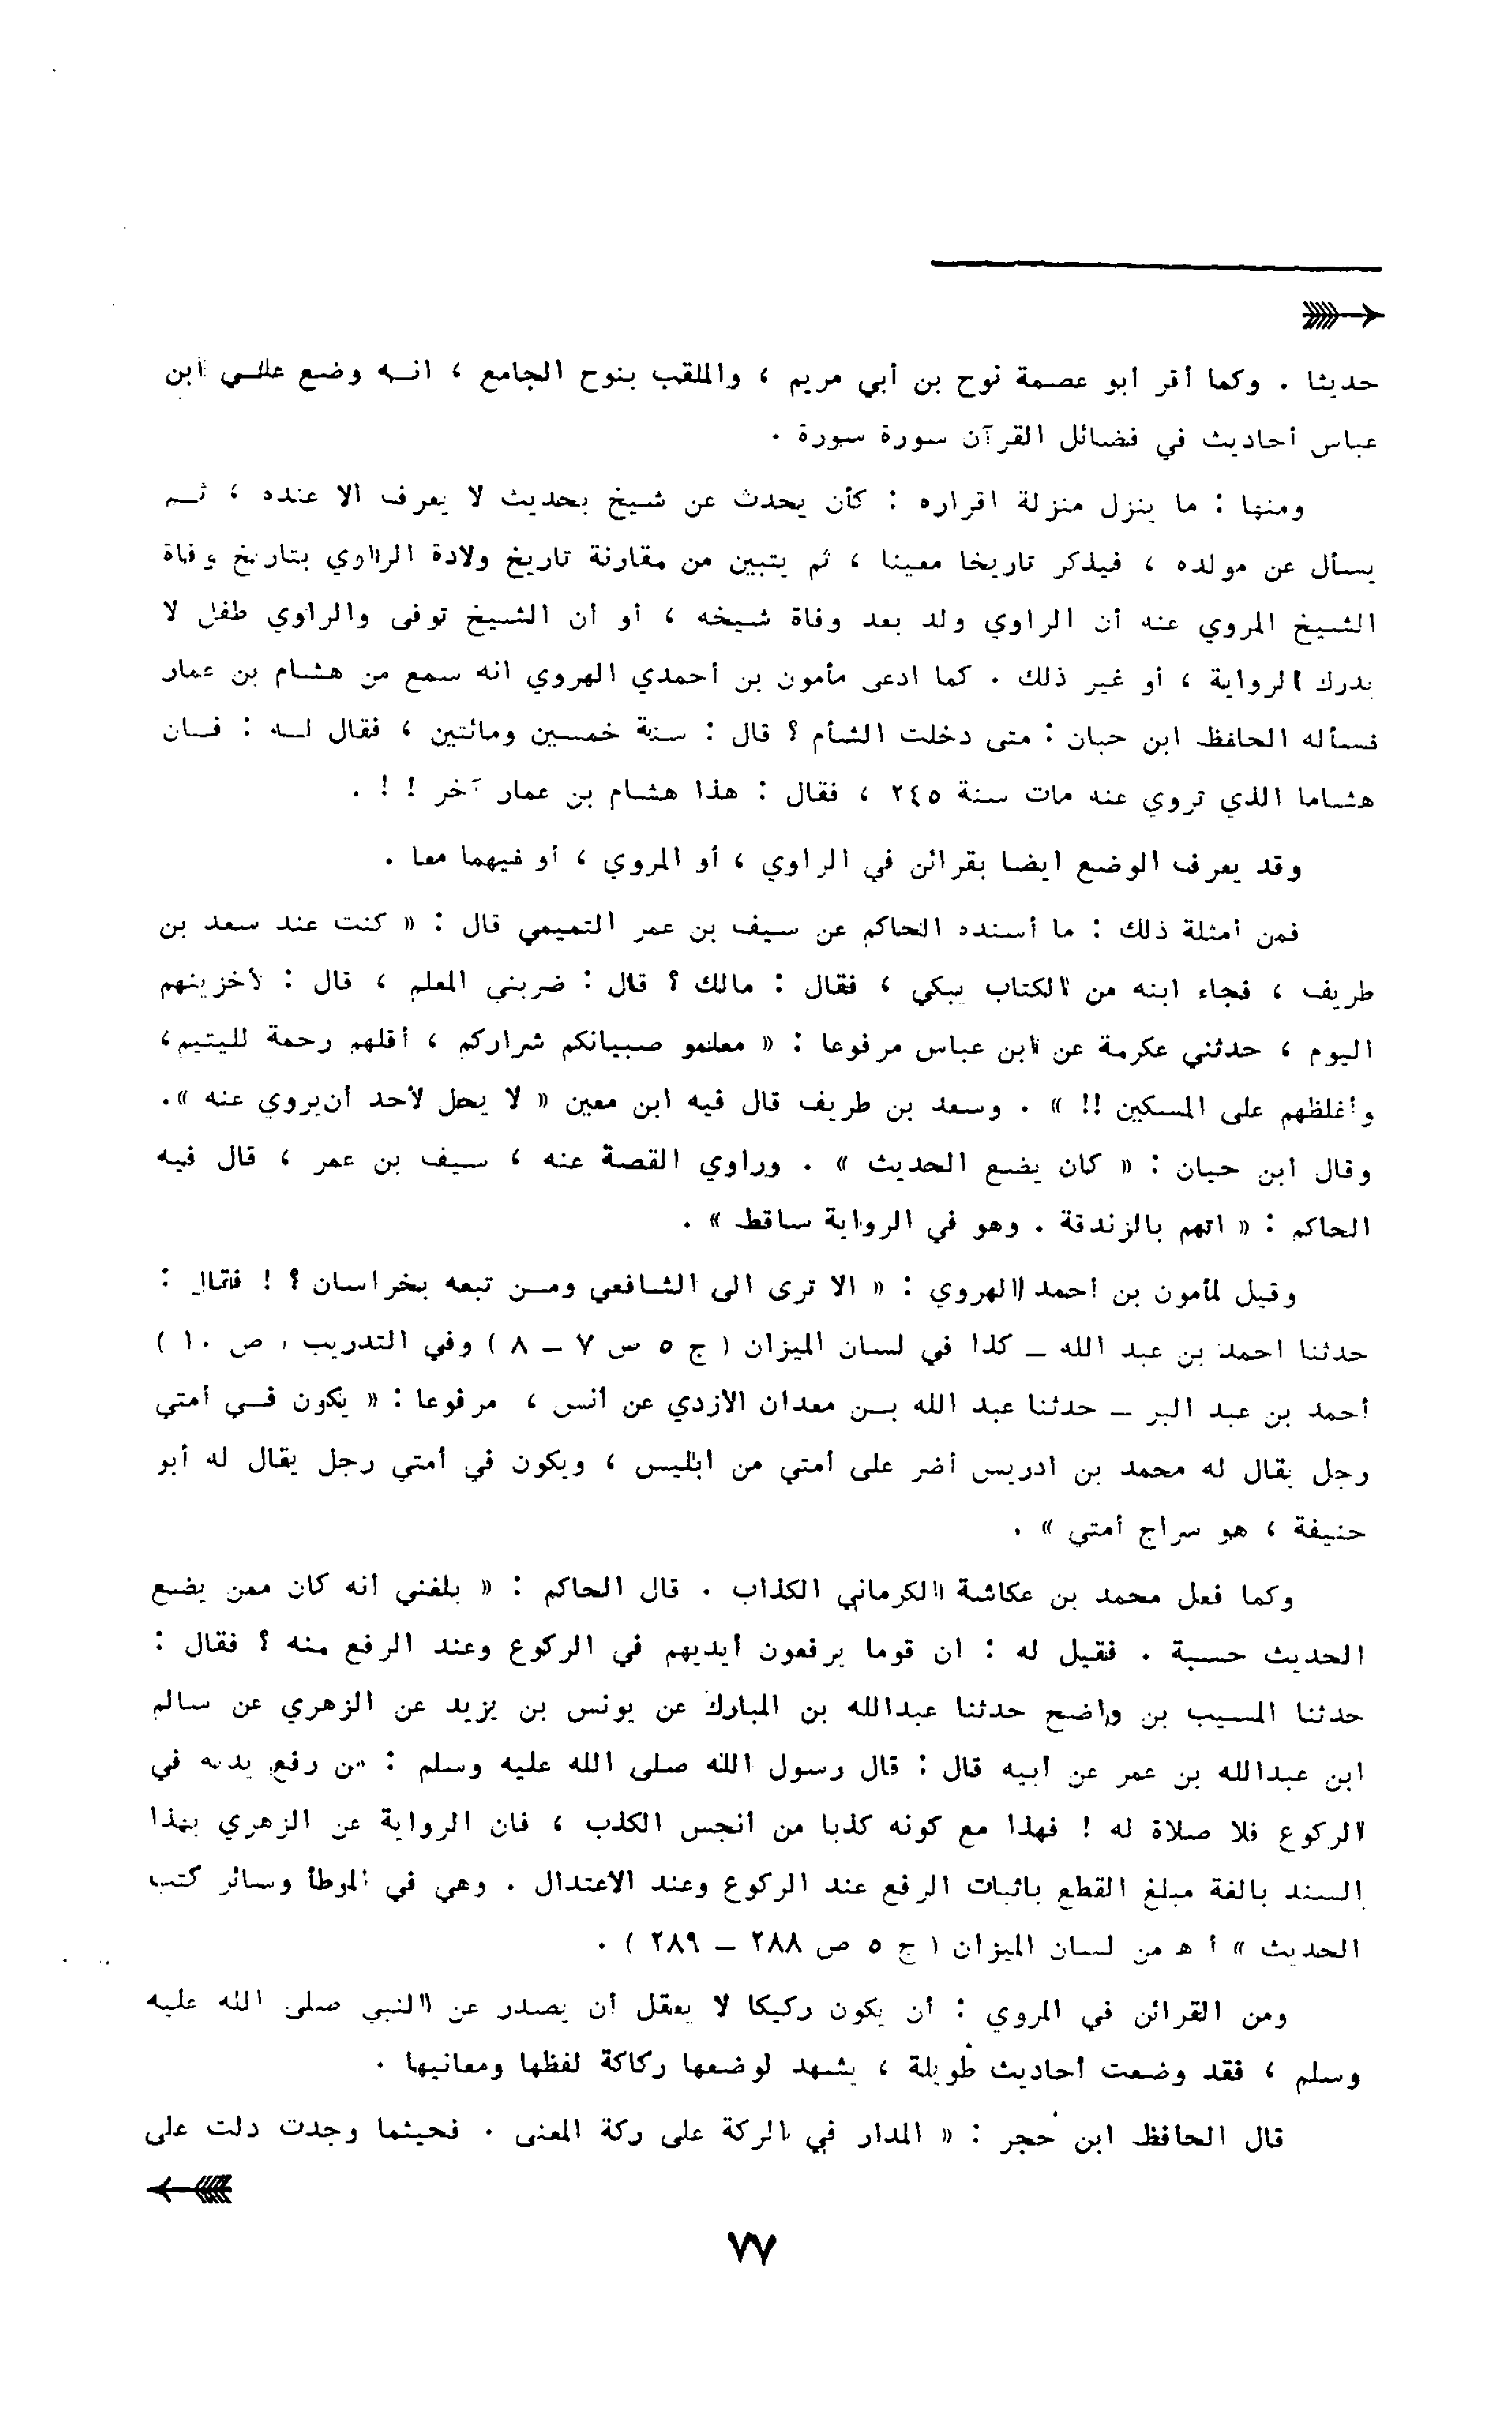 حديثا . وكما أقر أبو عصمة نوح بن أبي مريم ، والملقب بنوح الجامع ، انه وضع على ابن
عباس أحاديث في فضائل القرآن سورة سورة .
ومنها : ما ينزل منزلة اقراره : كأن يحدث عن شيخ بحديث لا يعرف الا عنده ، ثم
يسأل عن مولده ، فيذكر تاريخا معينا ، ثم يتبين من مقارنة تاريخ ولادة الراوي بتاريخ وفاة
الشيخ المروي عنه أن الراوي ولد بعد وفاة شيخه ، أو أن الشيخ توفى والراوي طفل لا
يدرك الرواية ، أو غير ذلك . كما ادعى مأمون بن أحمدي الهروي انه سمع من هشام بن عمار
فسأله الحافظ ابن حبان : متى دخلت الشأم ؟ قال : سنة خمسين ومائتين ، فقال له : فان
هشاما الذي تروي عنه مات سنة ٢٤٥ ، فقال : هذا هشام بن عمار آخر ! ! .
وقد يعرف الوضع ايضا بقرائن في الراوي ، أو المروي ، أو فيهما معا .
فمن أمثلة ذلك : ما أسنده الحاكم عن سيف بن عمر التميمي قال : « كنت عند سعد بن
طريف ، فجاء ابنه من الكتاب يبكي ، فقال : مالك ؟ قال : ضربني المعلم ، قال : لأخزينهم
اليوم ، حدثني عكرمة عن ابن عباس مرفوعا : « معلمو صبيانكم شراركم ، أقلهم رحمة لليتيم،
وأغلظهم على المسكين !! » . وسعد بن طريف قال فيه ابن معين « لا يحل لأحد أن يروي عنه ».
وقال ابن حبان : « كان يضع الحديث » . وراوي القصة عنه ، سيف بن عمر ، قال فيه
الحاكم : « اتهم بالزندقة . وهو في الرواية ساقط » .
وقيل لمأمون بن أحمد الهروي : « الا ترى الى الشافعي ومن تبعه بخراسان ؟ ! فقال :
حدثنا احمد بن عبد الله – كذا في لسان الميزان ( ج ٥ س ٧ – ٨ ) وفي التدريب ، ص ١٠ )
أحمد بن عبد البر – حدثنا عبد الله بن معدان الازدي عن أنس ، مرفوعا : « يكون في أمتي
رجل يقال له محمد بن ادريس أضر على أمتي من ابليس ، ويكون في أمتي رجل يقال له أبو
حنيفة ، هو سراج أمتي » .
وكما فعل محمد بن عكاشة الكرماني الكذاب . قال الحاكم : « بلغني أنه كان ممن يضع
الحديث حسبة . فقيل له : ان قوما يرفعون أيديهم في الركوع وعند الرفع منه ؟ فقال :
حدثنا المسيب بن واضح حدثنا عبدالله بن المبارك عن يونس بن يزيد عن الزهري عن سالم
ابن عبدالله بن عمر عن أبيه قال : قال رسول الله صلى الله عليه وسلم : من رفع يديه في
الركوع فلا صلاة له ! فهذا مع كونه كذبا من أنجس الكذب ، فان الرواية عن الزهري بهذا
السند بالغة مبلغ القطع باثبات الرفع عند الركوع وعند الاعتدال . وهي في الموطأ وسائر كتب
الحديث » أ هـ من لسان الميزان ( ج ٥ ص ٢٨٨ – ٢٨٩ ) .
ومن القرائن في المروي : أن يكون ركيكا لا يعقل أن يصدر عن النبي صلى الله عليه
وسلم ، فقد وضعت أحاديث طويلة ، يشهد لوضعها ركاكة لفظها ومعانيها .
قال الحافظ ابن حجر : « المدار في الركة على ركة المعنى . فحيثما وجدت دلت على
٧٧